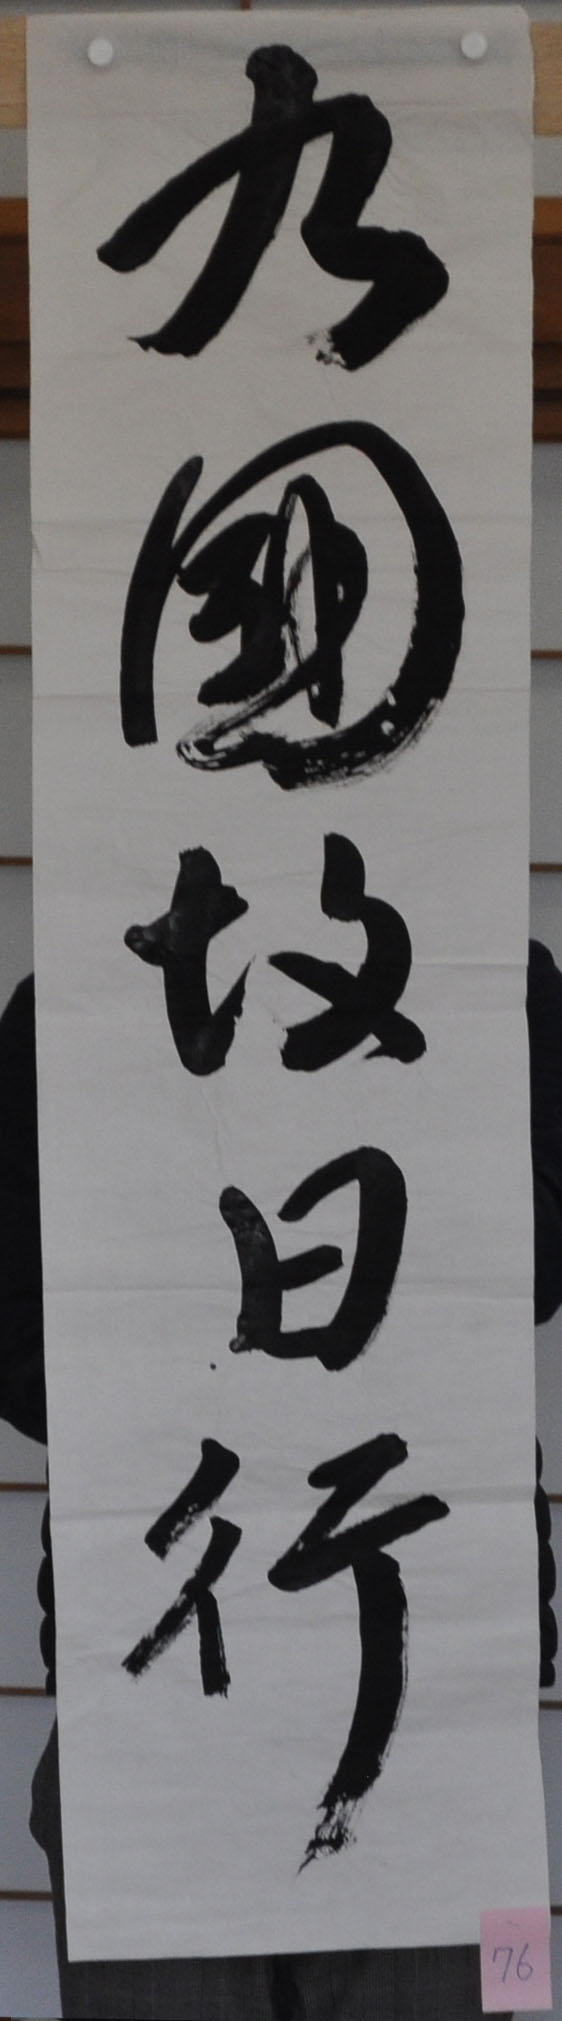 九國故日行
76